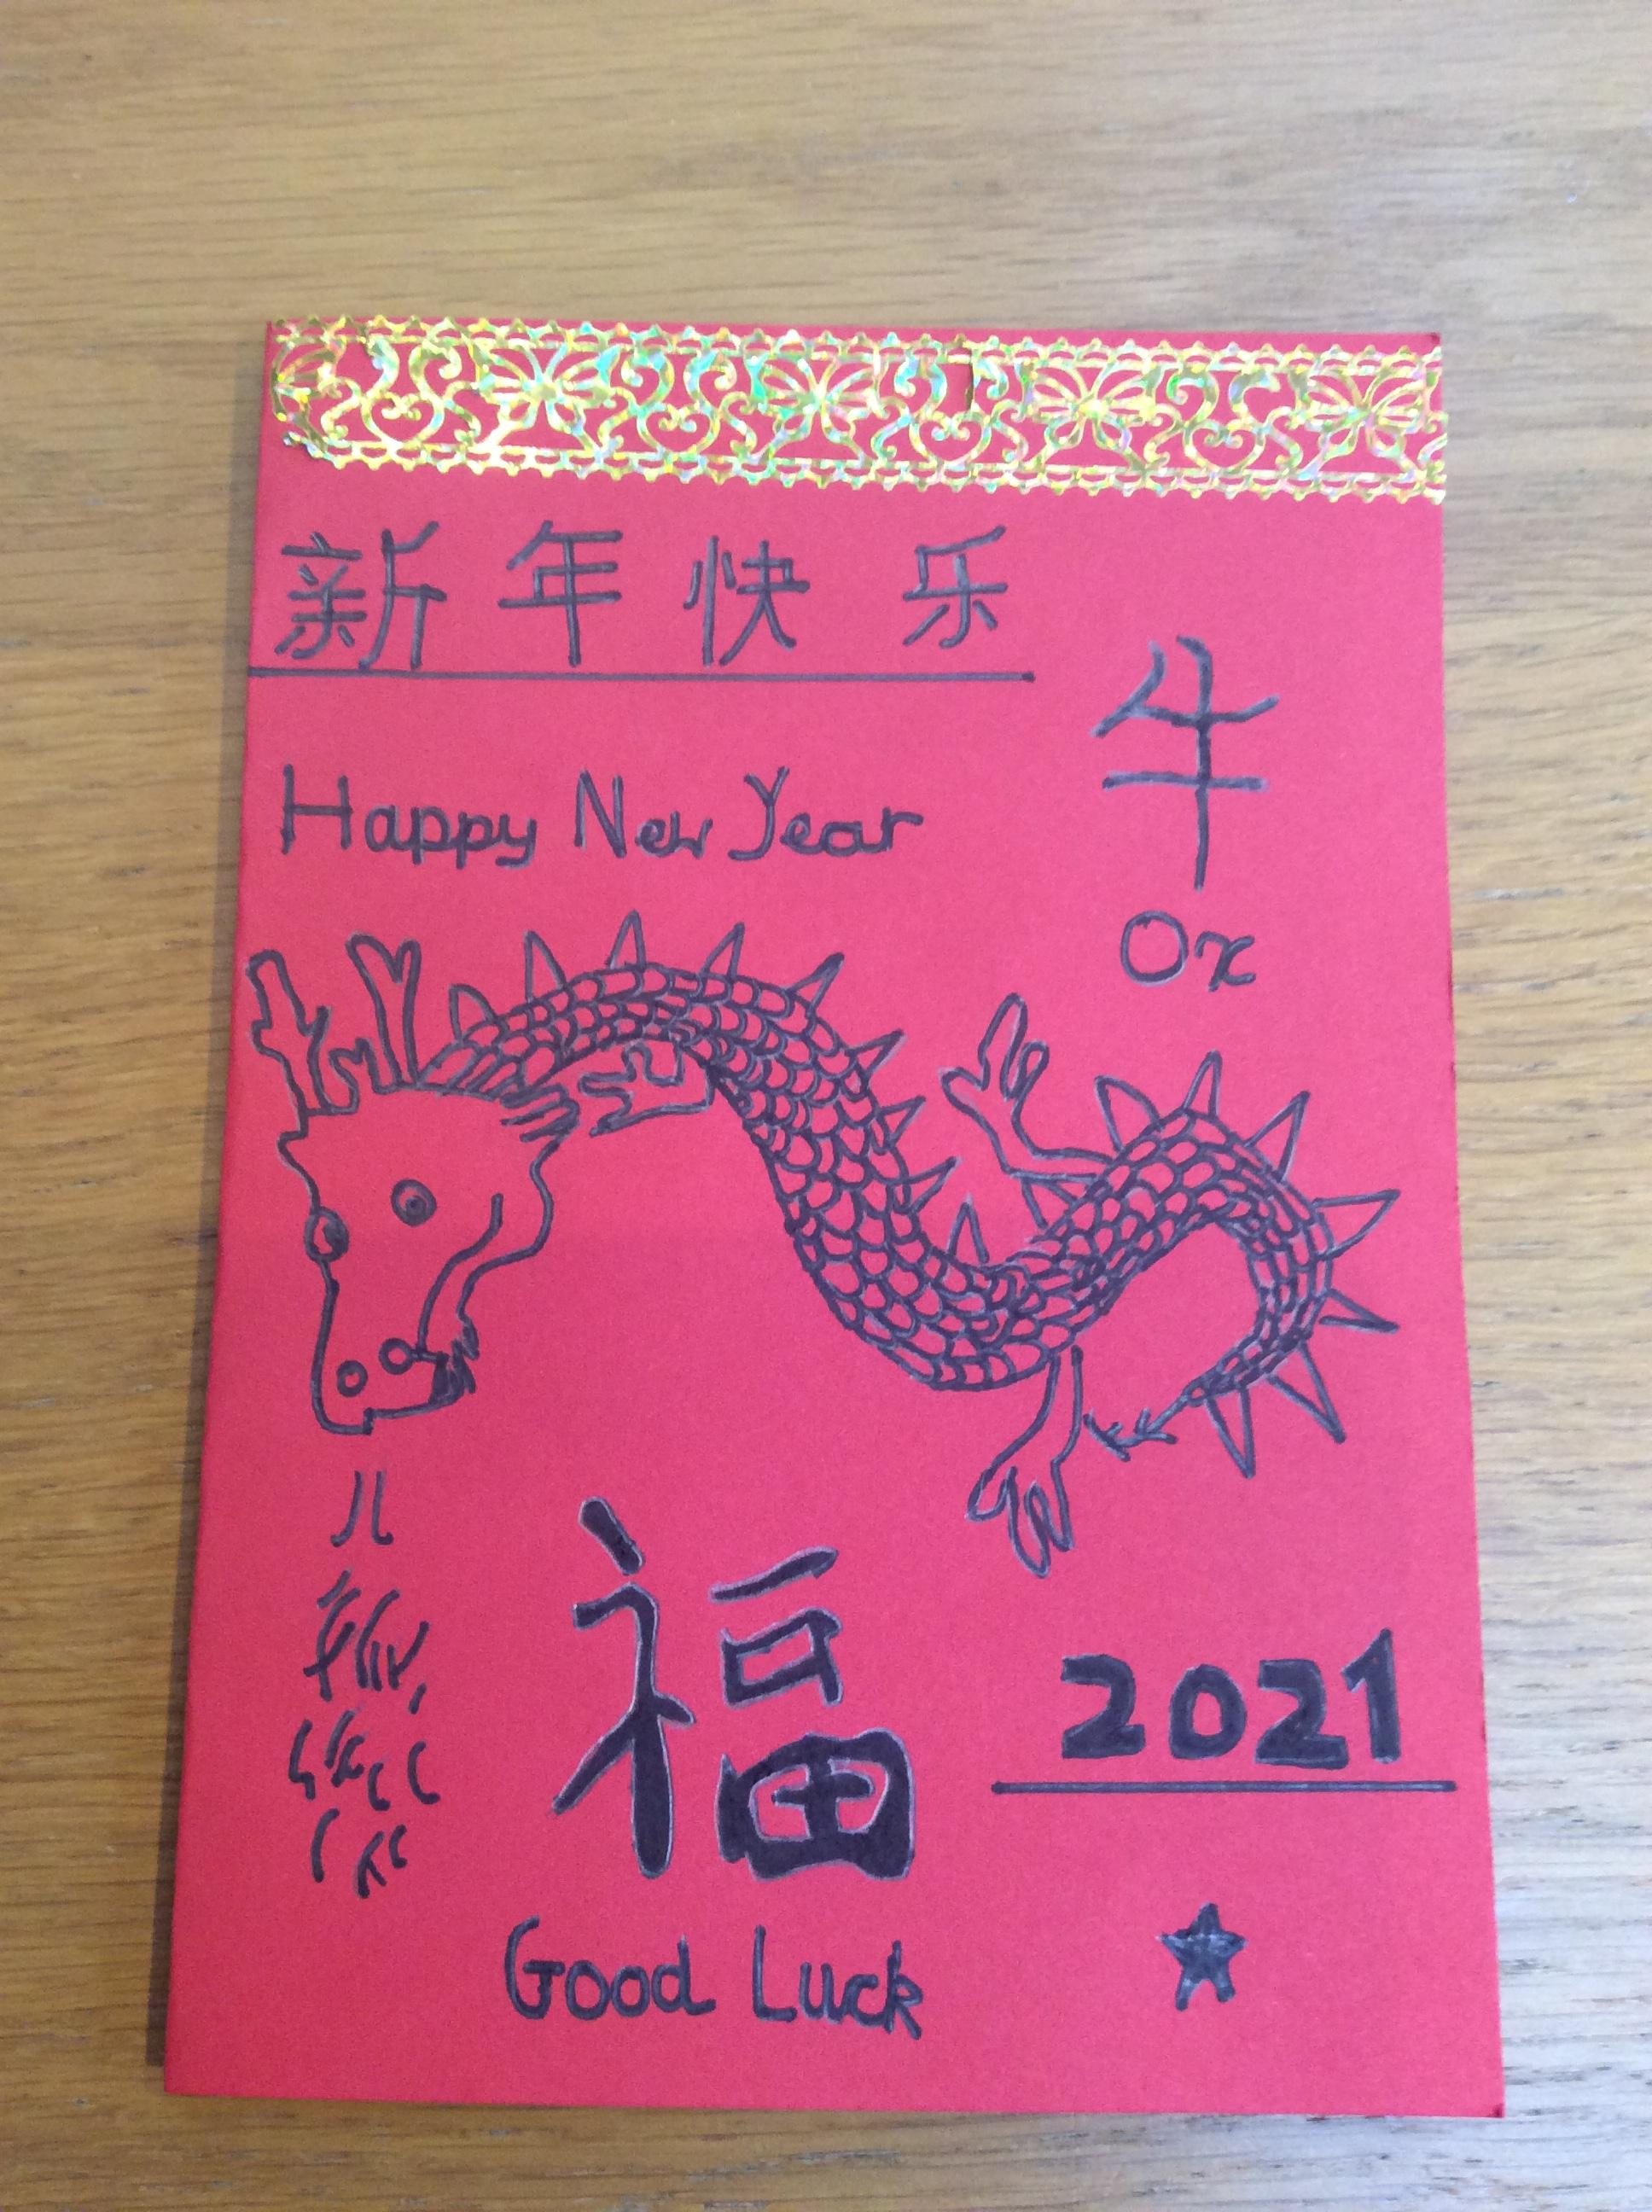 新年快乐
牛
Happy New Year
Ox
福
2021
Good Luck